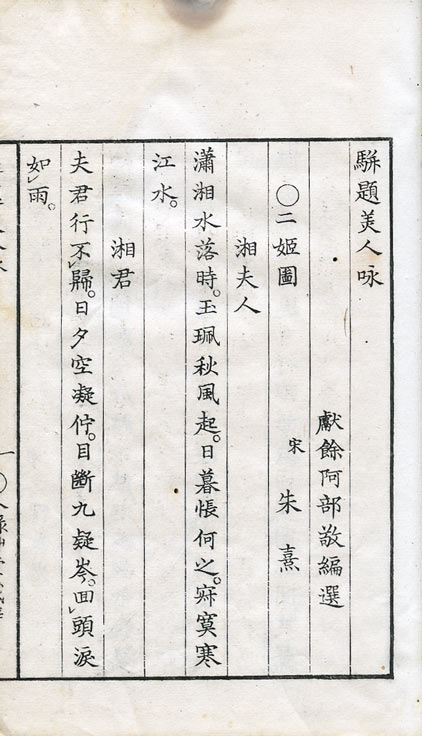 駢題美人咏
獻餘阿部敬編選
○二姬圖
宋 朱熹
湘夫人
瀟湘水落時。玉珮秋風起。日暮悵何之。寂寞寒
江水。
湘君
夫君行不㆑歸。日夕空凝佇。目斷九疑岑。回㆑頭淚
如㆑雨。